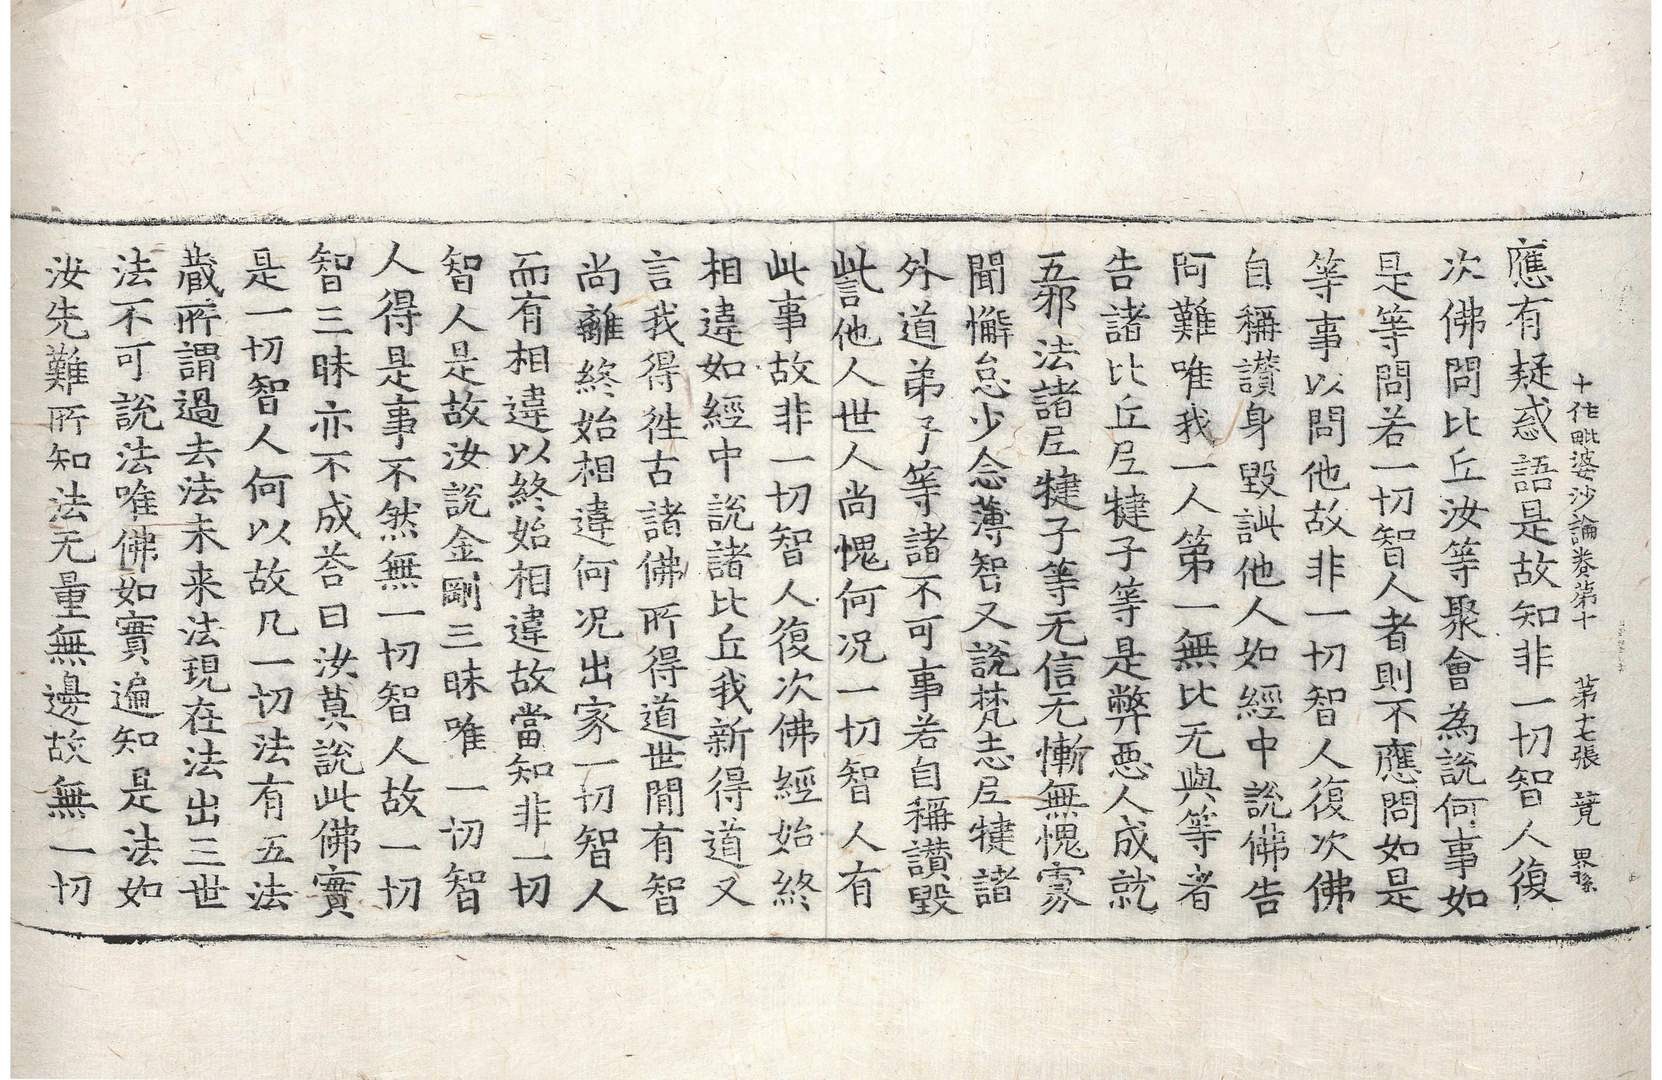 十住毗婆沙論卷第十　第十七張　競　畢孫
應有疑惑語是故知非一切智人復
次佛問比丘汝等聚會為說何事如
是等問若一切智人者則不應問如是
等事以問他故非一切智人復次佛
自稱讃身毀訿他人如經中說佛告
阿難唯我一人第一無比无與等者
告諸比丘尼犍子等是弊惡人成就
五邪法諸尼犍子等无信无慚無愧寡
聞懈怠少念薄智又說梵志尼犍諸
外道弟子等諸不可事若自稱讃毀
訾他人世人尚愧何况一切智人有
此事故非一切智人復次佛經始終
相違如經中說諸比丘我新得道又
言我得徃古諸佛所得道世閒有智
尚離終始相違何况出家一切智人
而有相違以終始相違故當知非一切
智人是故汝說金剛三昧唯一切智
人得是事不然無一切智人故一切
智三昧亦不成荅曰汝莫說此佛實
是一切智人何以故凡一切法有五法
藏所謂過去法未来法現在法出三世
法不可說法唯佛如實遍知是法如
汝先難所知法无量無邊故無一切